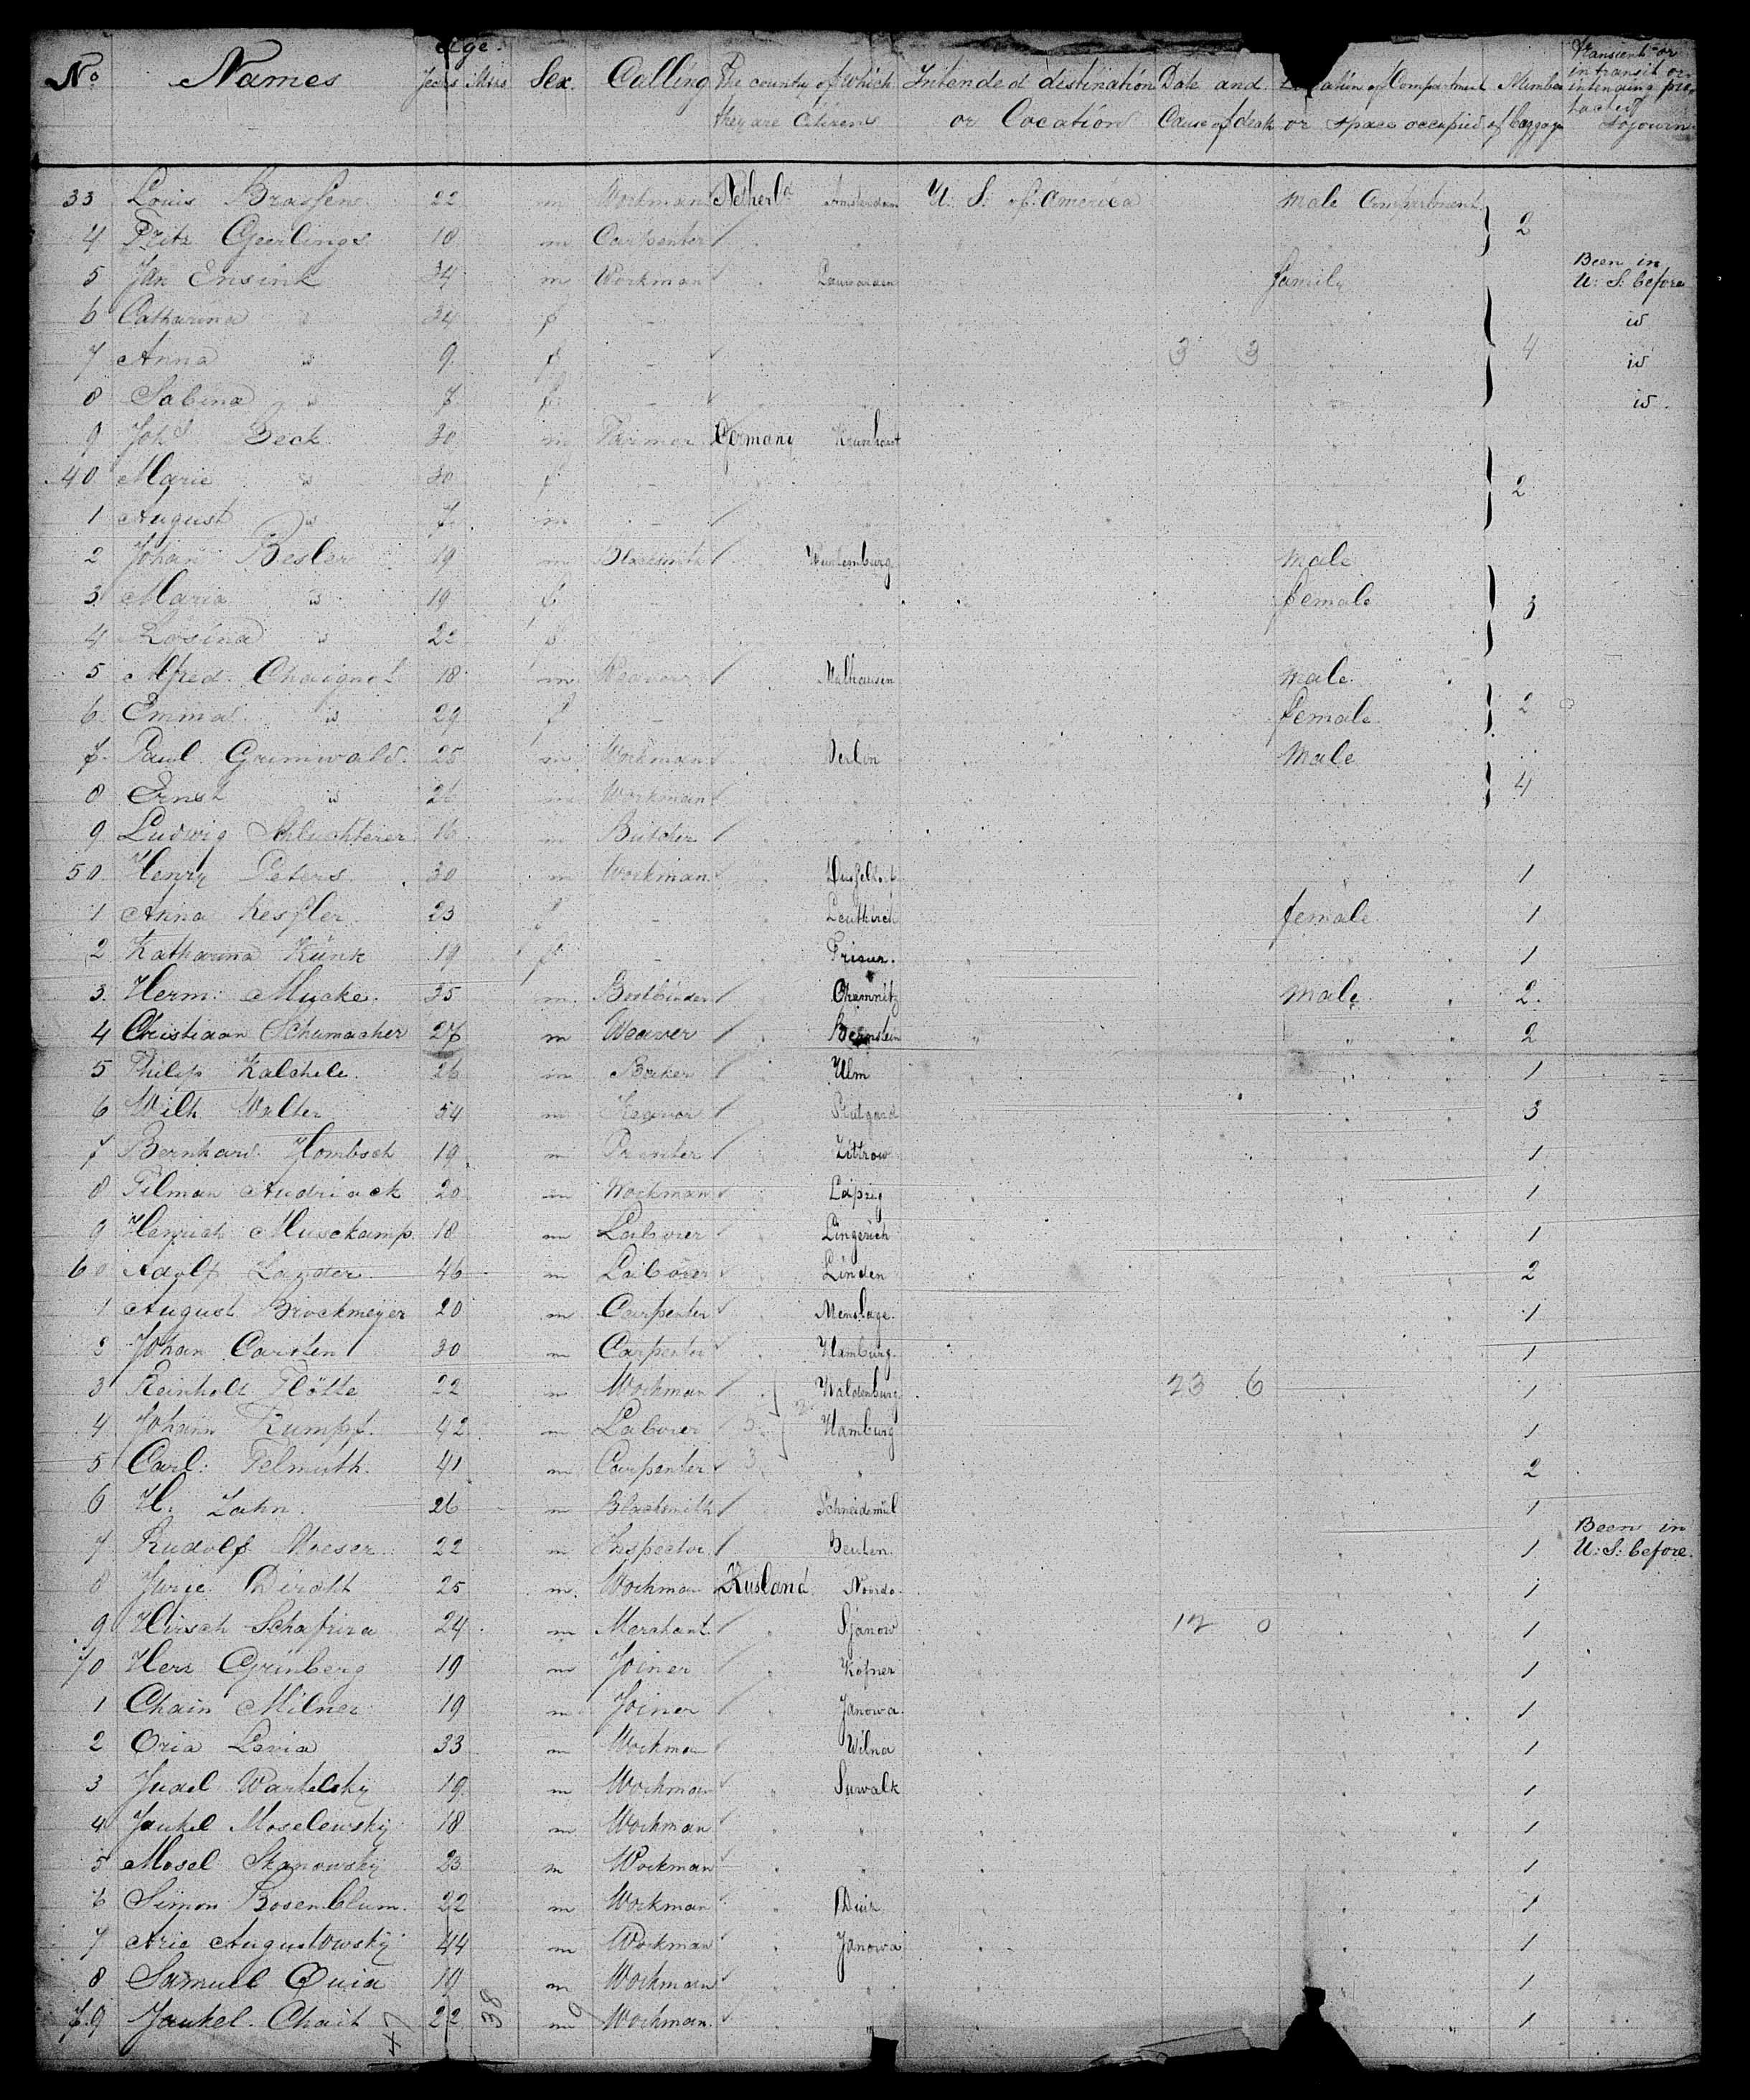 Age.
No Names Years Mns Sex. Calling The country of which Intended destination Date and Location of Compartment Number Transient or
they are Citizens or Location Cause of death or space occupied of baggage in transit or
intending pro-
tracted
sojourn
33 Louis Brassens 22 m Workman Netherld Amsterdam U. S. of America male Compartment
4 Fritz Geerlings 18 m Carpenter 2
5 Jan Ensink 34 m Workman family Been in
U: S: before
6 Catharina id 34 f id
7 Anna id 9 f 3 3 4 id
8 Sabina id 7 f id
9 Joh Beck 30 m Farmer Germany
40 Marie id 30 f 2
1 August id 7 m
2 Johan Besler 19 m Blacksmith Wurtemburg male
3 Maria id 19 f female 3
4 Rosina id 22 f
5 Alfred Chaignot 18 m Weaver Mulhausen male
6 Emma id 29 f female 2
7 Paul Grunwald 25 m Workman Berlin male
8 Ernst id 26 m Workman 4
9 Ludwig Schluchterer 16 m Butcher
50 Henry Peters 30 m Workman Dusseldorf 1
1 Anna Kessler 23 f Leutkirch female 1
2 Katharina Kunk 19 f 1
3 Herm: Mucke 35 m Chemnitz male 2
4 Christiaan Schumacher 27 m Weaver Bernstein " 2
5 Philip Kalchele 26 m Baker Ulm 1
6 Wilh Walter 54 m 3
7 Bernhard Hombsch 19 m Printer 1
8 Tilman Audriack 20 m Workman Leipzig 1
9 Heinrich Musckamp 18 m Laborer Lingerich 1
60 Adolf Lander 46 m Laborer Linden 2
1 August Brockmeyer 20 m Carpenter Menslage 1
2 Johan Carsten 30 m Carpenter Hamburg 1
3 Reinhold Flötte 22 m Workman Waldenburg 23 6 1
4 Johann Rumpf 42 m Laborer Hamburg 1
5 Carl: Felmuth 41 m Carpenter 3 " 2
6 H. Zahn 26 m Blacksmith Schneidemül 1
7 Rudolf Moeser 22 m Inspector Beuten 1 Been in
U: S: before
8 Jurie Diratt 25 m Workman Rusland 1
9 Hirsch Schafrira 24 m Merchant Sjanow 12 0 1
70 Herz Grünberg 19 m Joiner Kofner 1
1 Chain Milner 19 m Joiner Janowa 1
2 Oria Levia 33 m Workman Wilna 1
3 Judel Wartelsky 19 m Workman Suwalk 1
4 Jankel Moselewsky 18 m Workman " 1
5 Mosel Skanowsky 23 m Workman " 1
6 Simon Rosenblum 22 m Workman 1
7 Arie Augustowsky 44 m Workman Janowa 1
8 Samuel Quia 19 m Workman 1
79 Jankel Chait 22 m Workman " 1
47 38 9